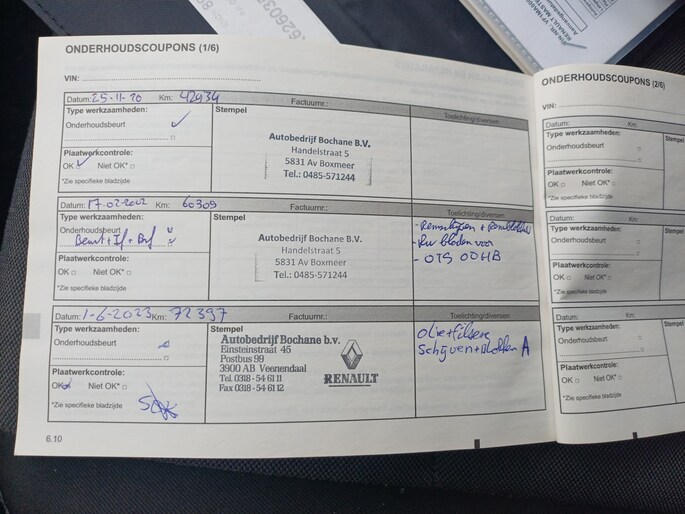 ONDERHOUDSCOUPONS (1/6)
VIN:
Datum: 25-11-20 Km: 42934 Factuurnr.:
Type werkzaamheden: Stempel Toelichting/diversen
Onderhoudsbeurt
Autobedrijf Bochane B.V.
Handelstraat 5
5831 Av Boxmeer
Tel.: 0485-571244
Plaatwerkcontrole:
OK Niet OK*
*Zie specifieke bladzijde
Datum: Km: 60309 Factuurnr.:
Type werkzaamheden: Stempel Toelichting/diversen
Onderhoudsbeurt
Autobedrijf Bochane B.V.
Handelstraat 5
5831 Av Boxmeer
Tel.: 0485-571244
Plaatwerkcontrole:
OK Niet OK*
*Zie specifieke bladzijde
Datum: 1-6-2023 Km: 72397 Factuurnr.:
Type werkzaamheden: Stempel Toelichting/diversen
Onderhoudsbeurt
Autobedrijf Bochane b.v.
Einsteinstraat 45
Postbus 99
3900 AB Veenendaal
Tel. 0318 - 54 61 11
Fax 0318 - 54 61 12
RENAULT
olie+filters
Plaatwerkcontrole:
OK Niet OK*
*Zie specifieke bladzijde
6.10
ONDERHOUDSCOUPONS (2/6)
VIN:
Datum: Km:
Type werkzaamheden: Stempel
Onderhoudsbeurt
Plaatwerkcontrole:
OK Niet OK*
*Zie specifieke bladzijde
Datum: Km:
Type werkzaamheden: Stempel
Onderhoudsbeurt
Plaatwerkcontrole:
OK Niet OK*
*Zie specifieke bladzijde
Datum: Km:
Type werkzaamheden: Stempel
Onderhoudsbeurt
Plaatwerkcontrole:
OK Niet OK*
*Zie specifieke bladzijde